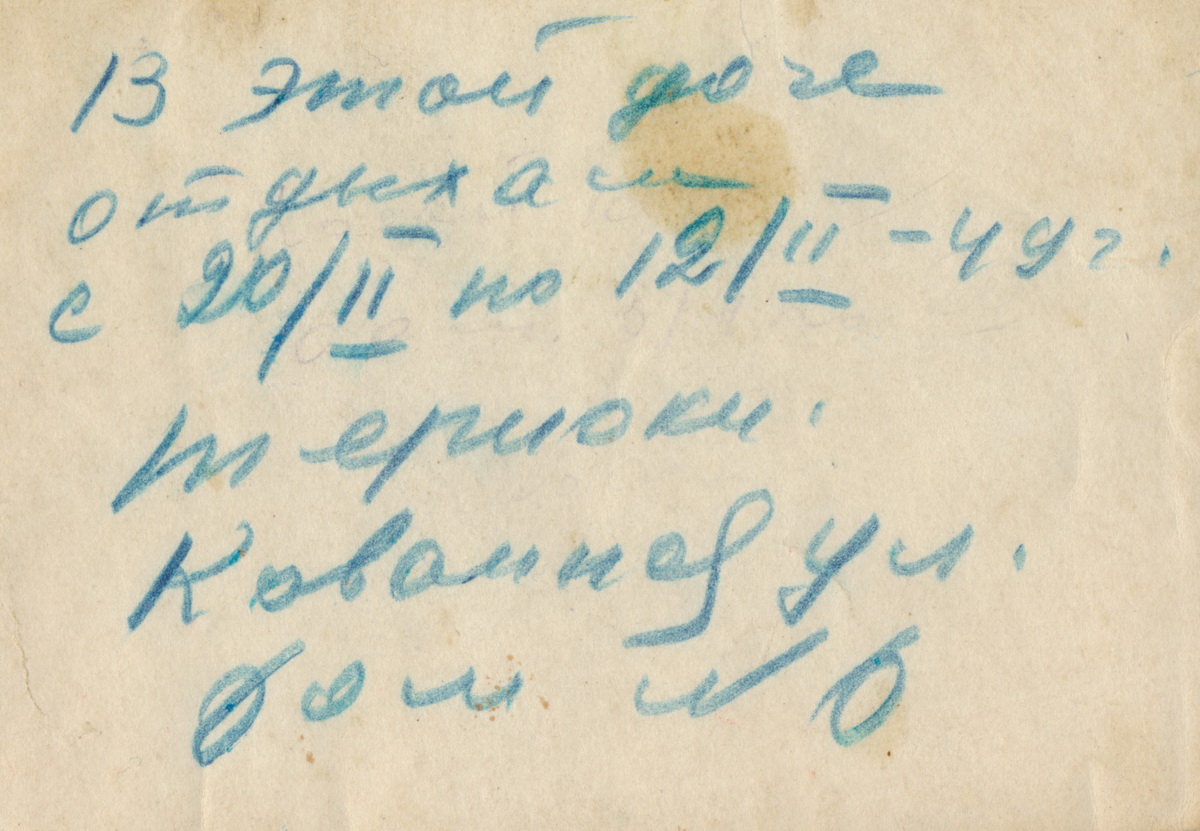 В этой даче
отдыхал
с 20/II по 12/II - 49 г.
Териоки.
ул.
дом № 6